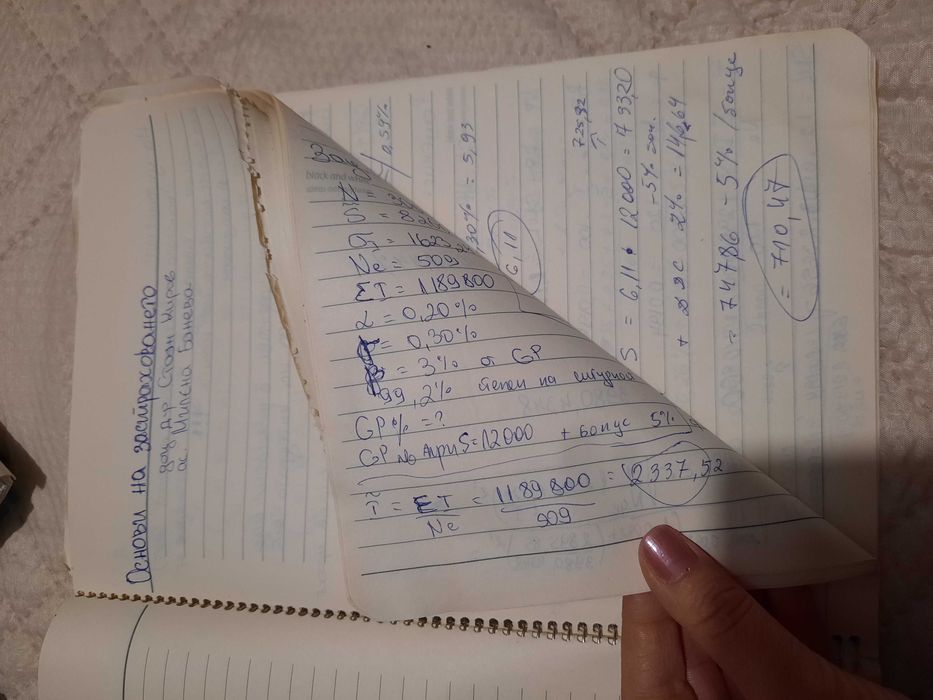 Основи на застраховането
доц. д-р Стоян Киров
ас. Милена Банева
Зад
black and whi
N = 30
S = 820
σī = 1623,2
Ne = 509
ΣI = 1189800
α = 0,20%
= 0,30%
= 3% от GP
99,2% степен на сигурнос
GP% = ?
GP No A при S = 12000 + бонус 5%
Ī = ΣI / Ne = 1189800 / 509 = 2337,52
0,59%
30% = 5,93
6,11
725,92
S = 6,11 • 12000 = 733,20
- 5%
+ ДЗС 2% = 14,664
= 747,86 - 5% / бонус
= 710,47